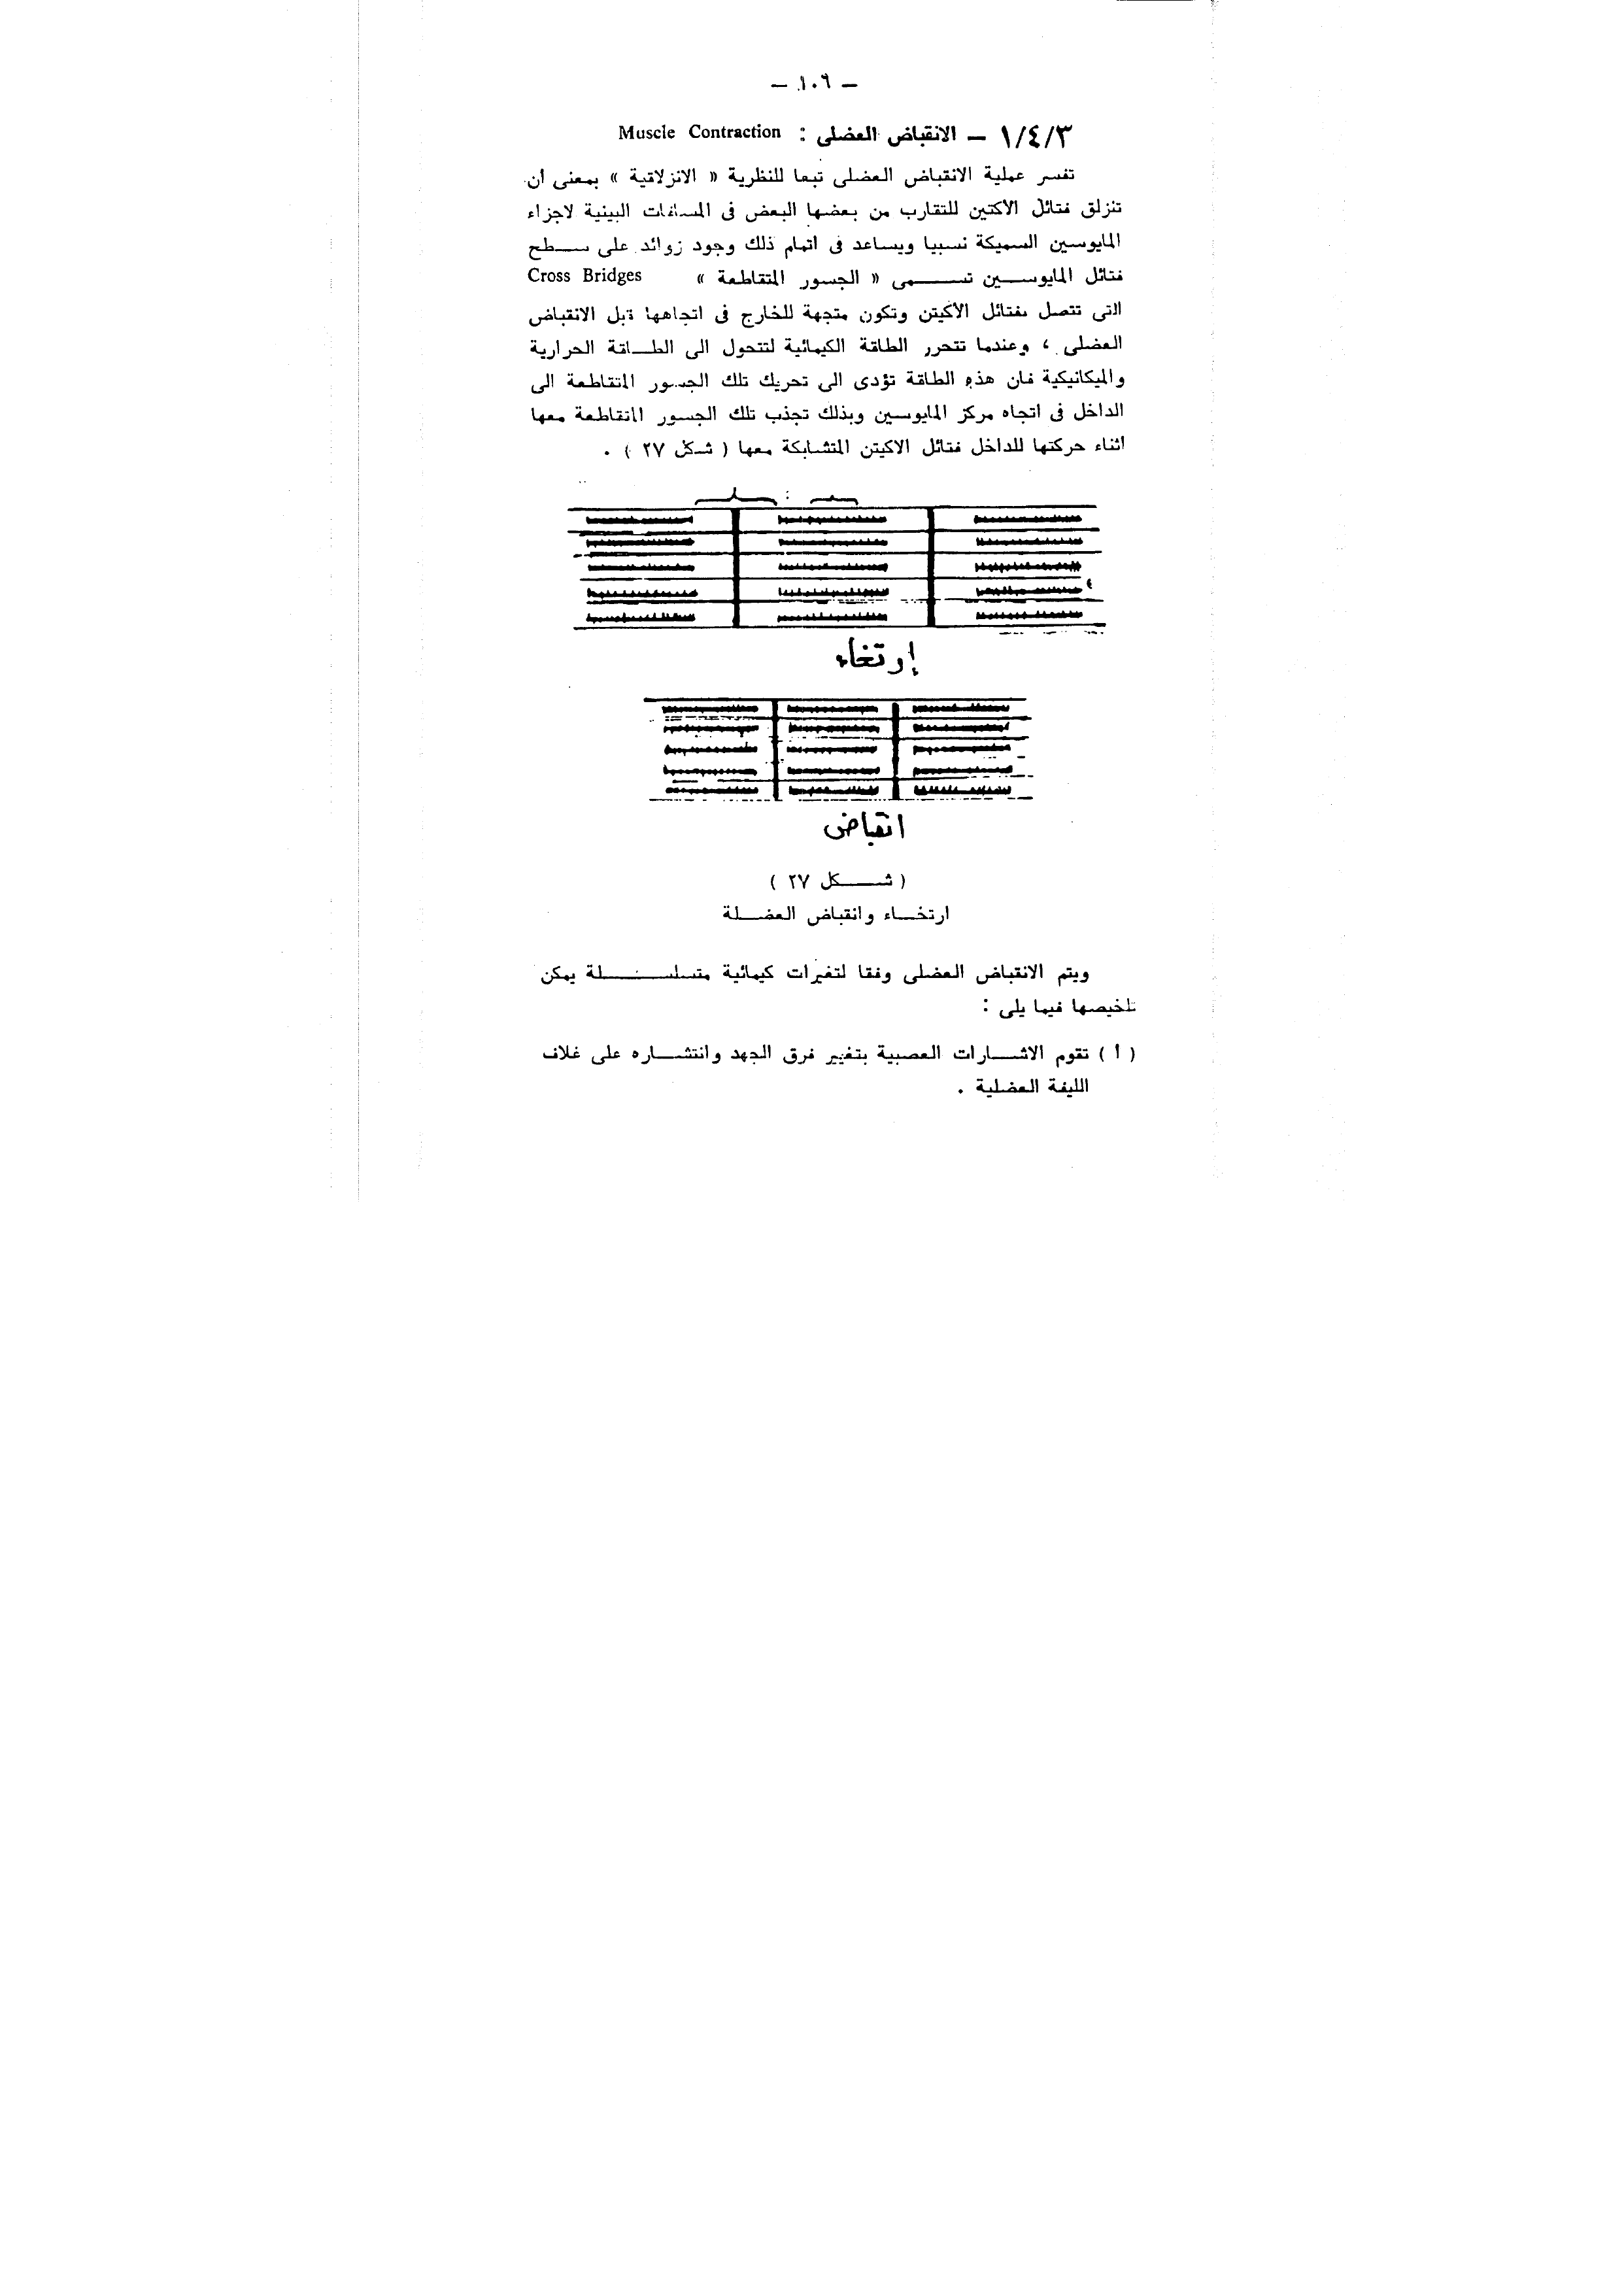 — ١٠٦ —
١/٤/٣ — الانقباض العضلى : Muscle Contraction
تفسر عملية الانقباض العضلى تبعا للنظرية « الانزلاقية » بمعنى ان
تنزلق فتائل الاكتين للتقارب من بعضها البعض فى المسافات البينية لاجزاء
المايوسين السميكة نسبيا ويساعد فى اتمام ذلك وجود زوائد على سطح
فتائل المايوسين تسمى « الجسور المتقاطعة » Cross Bridges
التى تتصل بفتائل الأكيتن وتكون متجهة للخارج فى اتجاهها قبل الانقباض
العضلى ، وعندما تتحرر الطاقة الكيمائية لتتحول الى الطاقة الحرارية
والميكانيكية فان هذه الطاقة تؤدى الى تحريك تلك الجسور المتقاطعة الى
الداخل فى اتجاه مركز المايوسين وبذلك تجذب تلك الجسور المتقاطعة معها
اثناء حركتها للداخل فتائل الاكيتن المتشابكة معها ( شكل ٢٧ ) .
إرتخاء
انقباض
( شكل ٢٧ )
ارتخاء وانقباض العضلة
ويتم الانقباض العضلى وفقا لتغيرات كيمائية متسلسلة يمكن
تلخيصها فيما يلى :
( أ ) تقوم الاشارات العصبية بتغيير فرق الجهد وانتشاره على غلاف
الليفة العضلية .